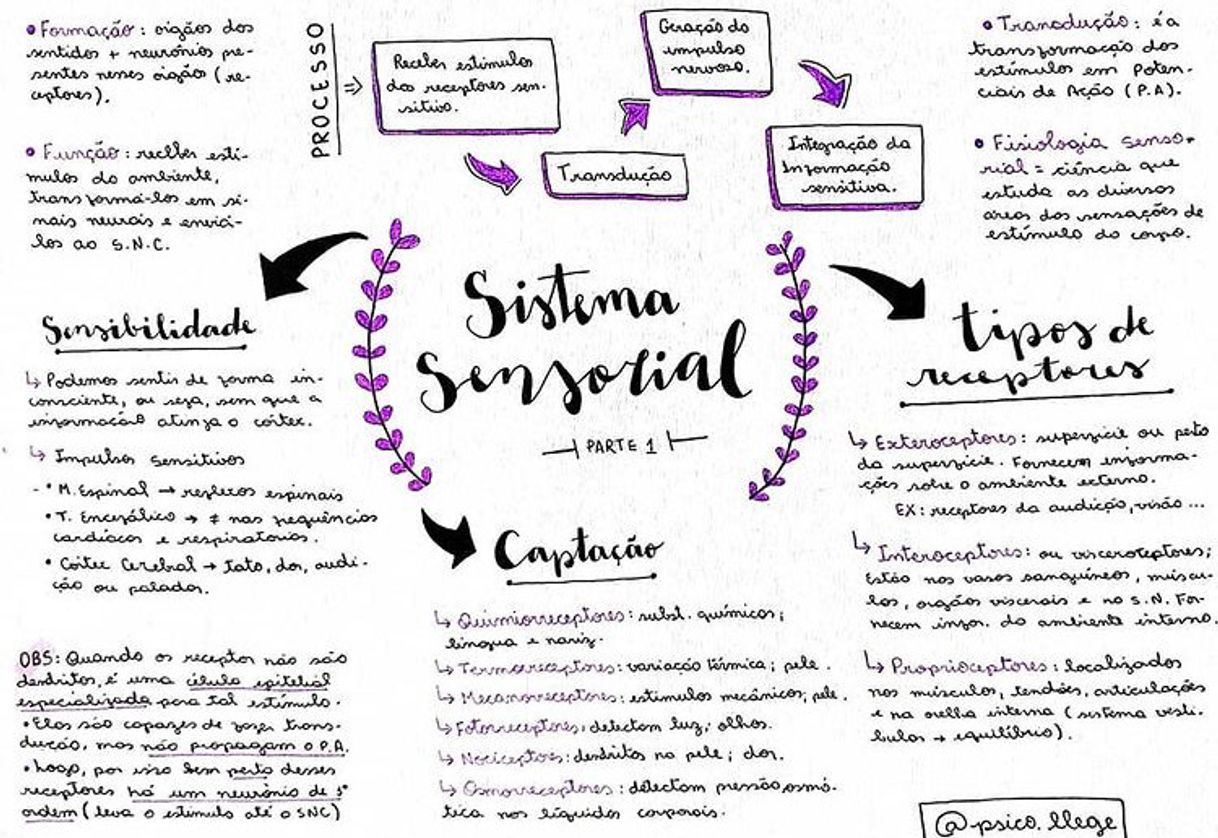 • Formação: orgãos dos
sentidos + neurônios pre-
sentes nesses orgãos (re-
ceptores).
• Função: receber estí-
mulos do ambiente,
transformá-los em si-
nais neurais e enviá-
los ao S.N.C.
PROCESSO
⇒
Receber estímulos
dos receptores sen-
sitivo.
Transdução
Geração do
impulso
nervoso.
Integração da
Informação
sensitiva.
• Transdução: é a
transformação dos
estímulos em Poten-
ciais de Ação (P.A).
• Fisiologia senso-
rial = ciência que
estuda as diversas
áreas das sensações de
estímulo do corpo.
Sistema
Sensorial
PARTE 1
Sensibilidade
↳ Podemos sentir de forma in-
consciente, ou seja, sem que a
informação atinja o córtex.
↳ Impulsos Sensitivos
- • M. Espinal → reflexos espinais
• T. Encefálico → ≠ nas frequências
cardíacas e respiratorias.
• Córtex Cerebral → Tato, dor, audi-
ção ou paladar.
OBS: Quando os receptor não são
dendritos, é uma célula epitelial
especializada para tal estímulo.
• Elas são capazes de fazer trans-
dução, mas não propagam o P.A.
• Logo, por isso bem perto desses
receptores há um neurônio de 1ª
ordem (leva o estímulo até o SNC)
Captação
↳ Quimiorreceptores: subst. químicas;
língua e nariz.
↳ Termorreceptores: variação térmica; pele.
↳ Mecanorreceptores: estímulos mecânicos; pele.
↳ Fotorreceptores: detectam luz; olhos.
↳ Nociceptores: dendritos na pele; dor.
↳ Osmorreceptores: detectam pressão osmó-
tica nos líquidos corporais.
tipos de
receptores
↳ Exteroceptores: superfície ou perto
da superfície. Fornecem informa-
ções sobre o ambiente externo.
EX: receptores da audição, visão ...
↳ Interoceptores: ou visceroceptores;
Estão nos vasos sanguíneos, múscu-
los, orgãos viscerais e no S.N. For-
necem infor. do ambiente interno.
↳ Proprioceptores: localizados
nos músculos, tendões, articulações
e na orelha interna (sistema vesti-
bular → equilíbrio).
@psico.llege